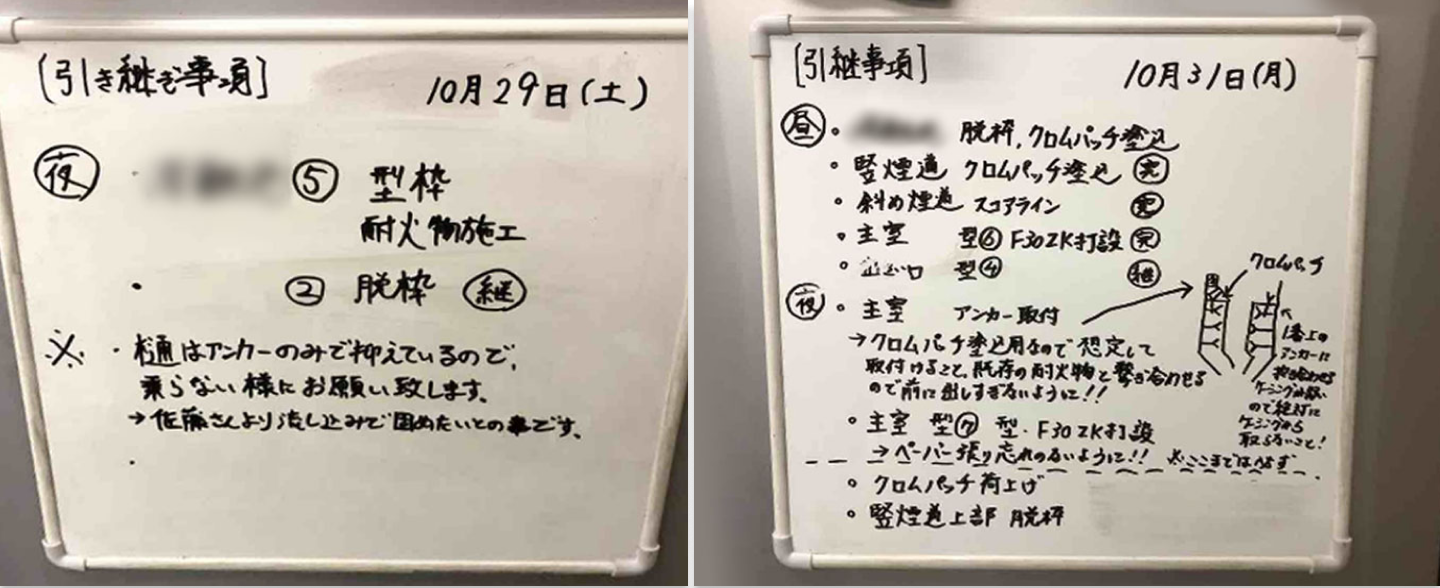 [引き継ぎ事項]
10月29日(土)
夜
・ ⑤ 型枠
耐火物施工
・ ② 脱枠 継
※ ・樋はアンカーのみで抑えているので、
乗らない様にお願い致します。
→佐藤さんより流し込みで固めたいとの事です。
・
[引継事項]
10月31日(月)
昼 ・ 脱枠,クロムパッチ塗込
・竪煙道 クロムパッチ塗込 完
・斜め煙道 スコアライン 完
・主室 型⑥ F30ZK打設 完
・ 型④ 継
夜 ・主室 アンカー取付
→クロムパッチ塗込用なので想定して
取付けること,既存の耐火物と繋ぎ合わせる
ので前に出しすぎないように!!
・主室 型⑦ 型・F30ZK打設
→ペーパー張り忘れのないように!! ※ここまでは必ず
・クロムパッチ荷上げ
・竪煙道上部 脱枠
クロムパッチ
1番上の
アンカーに
ケーシングが
ので絶対に
ケーシングから
取らないこと!